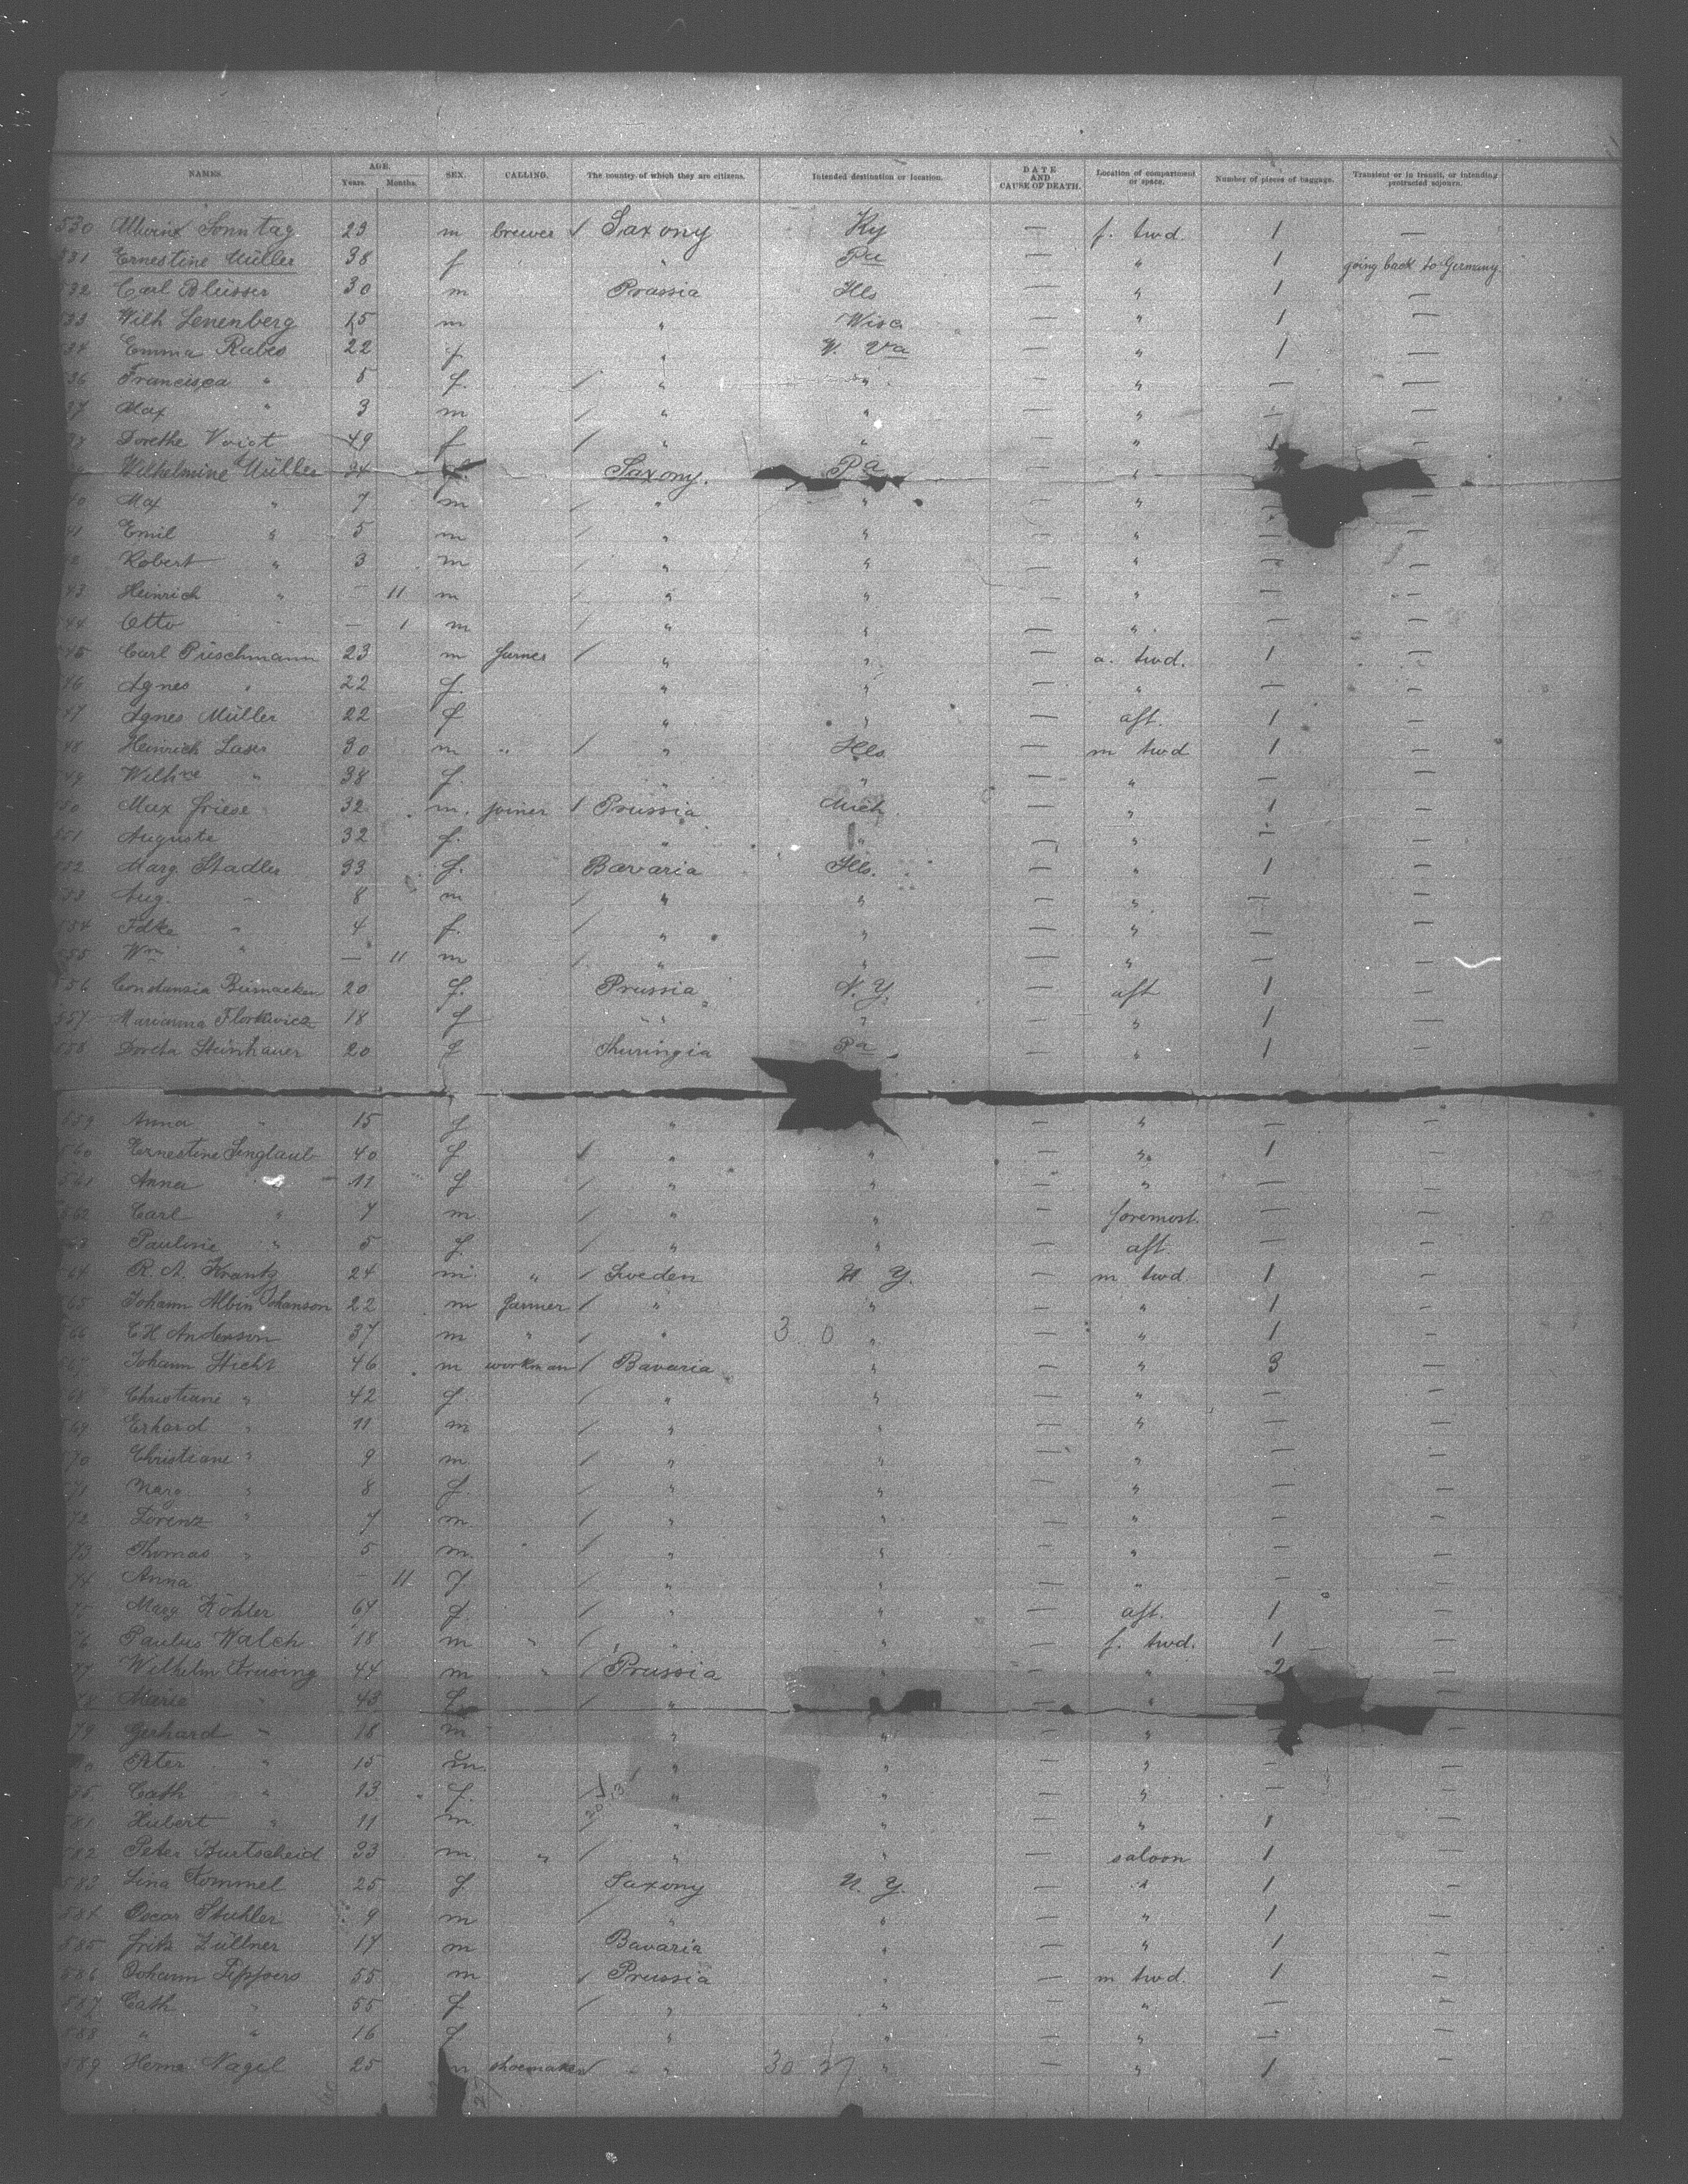 NAMES. AGE. Years. Months. SEX. CALLING. The country of which they are citizens. Intended destination or location. DATE AND CAUSE OF DEATH. Location of compartment or space. Number of pieces of baggage. Transient or in transit, or intending protracted sojourn.
530 Sonntag 23 m brewer / Saxony Ky — f. twd. 1 —
531 Ernestine Müller 38 f " Pa — " 1 going back to Germany
32 Carl 30 m Prussia Ills — " 1 —
33 Wilh 15 m " Wisc — " 1 —
34 Emma 22 f " W. Va — " 1 —
36 Francisca " 5 f. / " " — " — —
37 Max " 3 m / " " — " — —
38 Dorethe Voigt 49 f / " " — " 1
Wilhelmine Müller 34 f. Saxony. Pa "
40 Max " 7 m / " " — " —
41 Emil " 5 m / " " — " —
Robert " 3 m / " " — " — —
43 Heinrich " — 11 m / " " — " — —
44 Otto " — 1 m / " " — " — —
545 Carl Püschmann 23 m farmer / " " — a. twd. 1 —
46 Agnes " 22 f. " " — " — —
47 Agnes Müller 22 f " " — aft. 1 —
48 Heinrich Laser 30 m " / " Ills — m twd 1 —
49 Wilhne " 38 f. " " — " — —
50 Max Friese 32 m. joiner / Prussia Mich — " 1 —
551 Auguste 32 f. " " — " — —
552 Marg. Stadler 33 f. Bavaria Ills. — " 1 —
553 Aug. " 8 m " " — " — —
554 Fdke " 4 f. / " " — " — —
555 Wm " — 11 m / " " — "
556 Constansia 20 f. Prussia N. Y. — aft 1 —
557 Marianna 18 f " " — " 1 —
558 Doreta Steinhauer 20 f Thuringia Pa — " 1 —
559 Anna " 15 f " — " — —
560 Ernestine Singlaub 40 f / " " — " 1 —
561 Anna " 11 f / " " — " — —
562 Carl " 7 m. / " " — foremost. — —
563 Pauline " 5 f. / " " — aft. — —
564 R. A. Krantz 24 m. " / Sweden N. Y. — m twd. 1 —
565 Johann Albin Johanson 22 m farmer / " " — " 1 —
566 C H Anderson 37 m " / " 3. 0 " — " 1 —
567 Johann Hecht 46 m workman / Bavaria " — " 3 —
68 Christiane " 42 f. / " " — " — —
69 Erhard " 11 m / " " — " — —
70 Christiane " 9 m / " " — " — —
71 Marg. " 8 f. / " " — " — —
72 Lorenz " 7 m. / " " — " — —
73 Thomas " 5 m. / " " — " — —
74 Anna — 11 f / " " — " — —
75 Marg Köhler 64 f. / " " — aft. 1 —
76 Paulus Walch 18 m " / " " — f. twd. 1 —
77 Wilhelm Kreusing 44 m " / Prussia " — " 2 —
78 Marie " 43 f / " — " —
79 Gerhard " 18 m " " — " —
80 Peter " 15 m. " " — " — —
Cath " 13 f. / " " — " — —
581 Hubert " 11 m. " " — " 1 —
582 Peter Burtscheid 33 m. " / " " — saloon 1 —
583 Lina Kommel 25 f. Saxony N. Y. — " 1 —
584 Oscar Stuhler 9 m / " " — " 1 —
585 Fritz Züllner 17 m Bavaria " — " 1 —
586 Johann 55 m / Prussia " — m twd. 1 —
587 Cath " 55 f / " " — " — —
588 " " 16 f " " — " — —
589 Nagel 25 m shoemaker / " 30 27 " — " 1 —